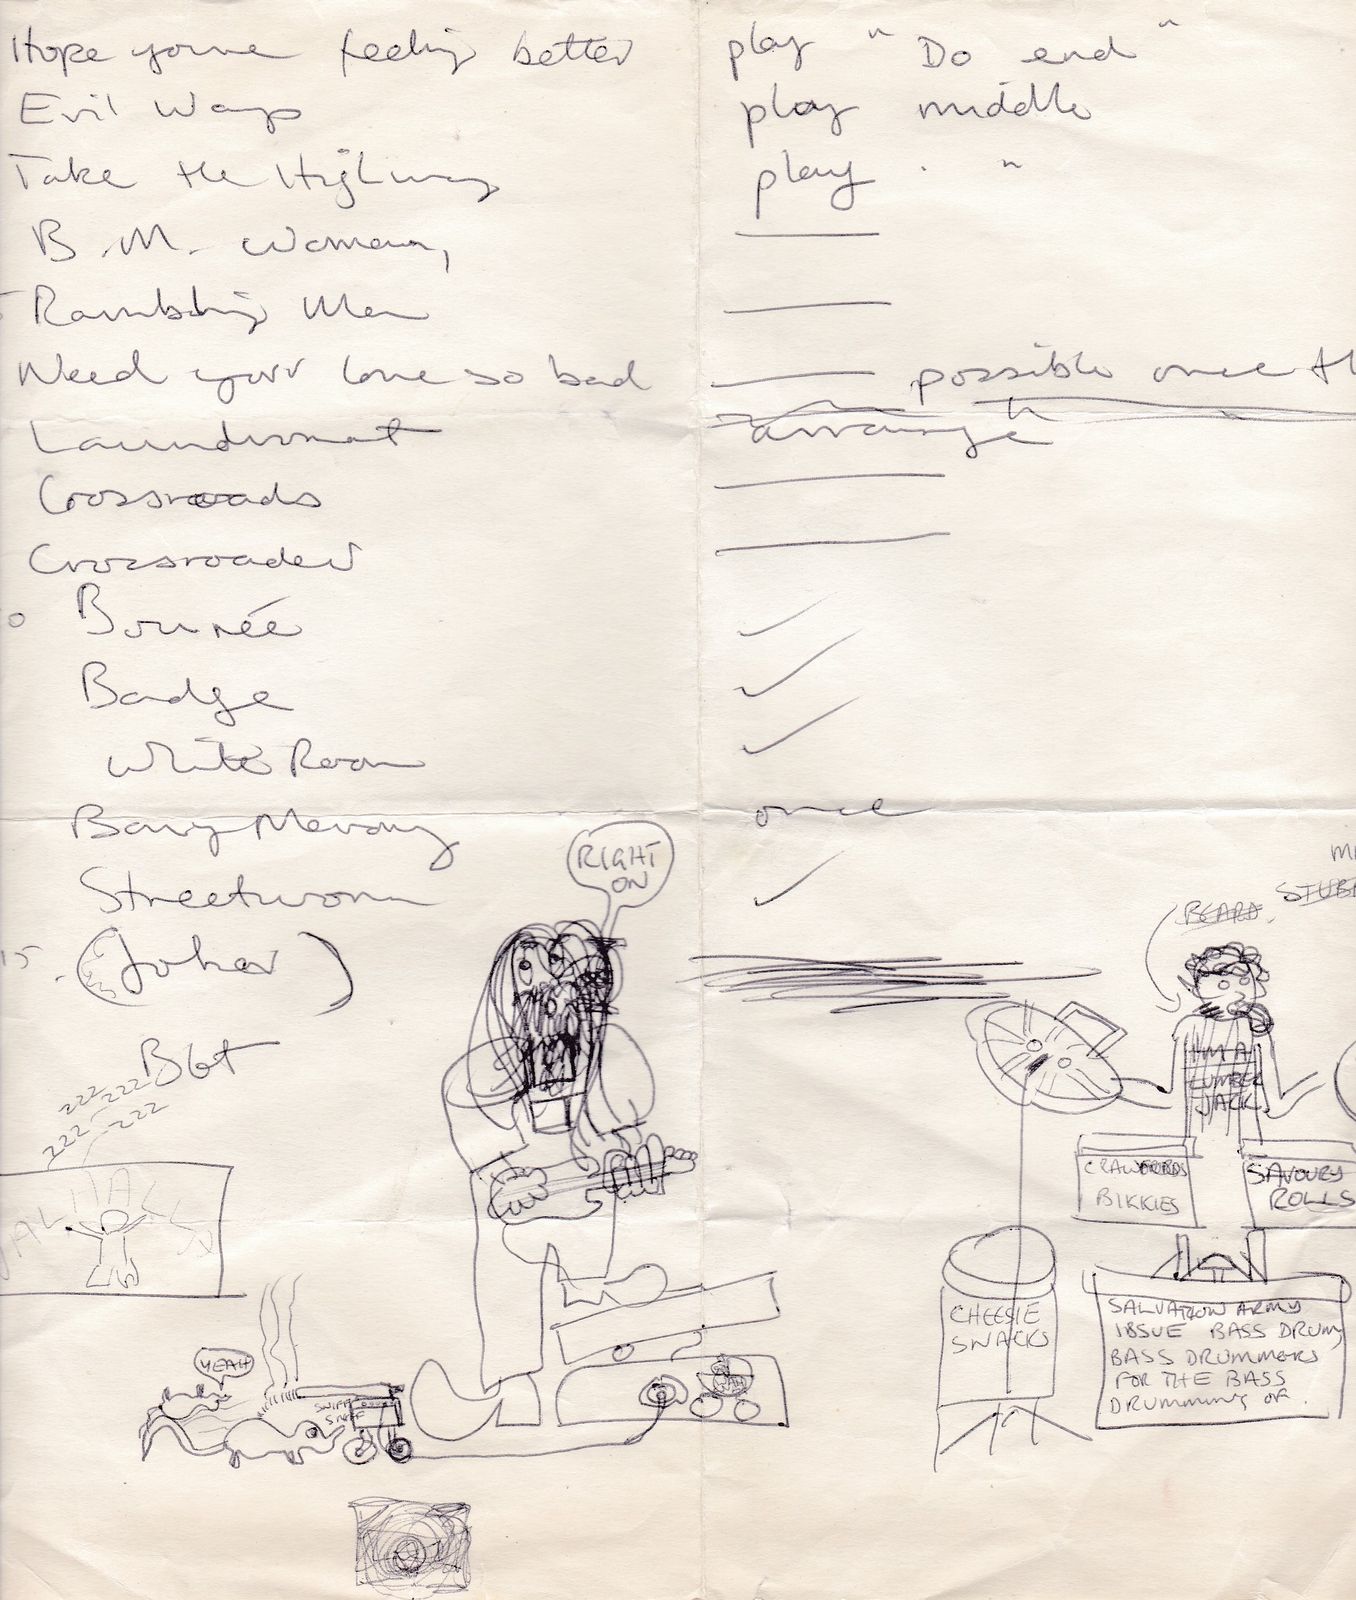 Hope youre feeling better play " Do end "
Evil Ways play middle
Take the Highway play . "
B.M. Woman,
Rambling Man
Need your love so bad possible once th
Laundromat arrange
Crossroads
Crossroader
Bourée
Badge
White Room
once
15. (Joker)
RIGHT
ON
BEARD.
I'M A
LUMBER
JACK
zzz zzz zzz
zzz zzz
CRAWFORDS
BIKKIES
SAVOURY
ROLLS
CHEESIE
SNACKS
SALVATION ARMY
ISSUE BASS DRUM,
BASS DRUMMERS
FOR THE BASS
DRUMMING OF.
YEAH
SNIFF
SNIFF